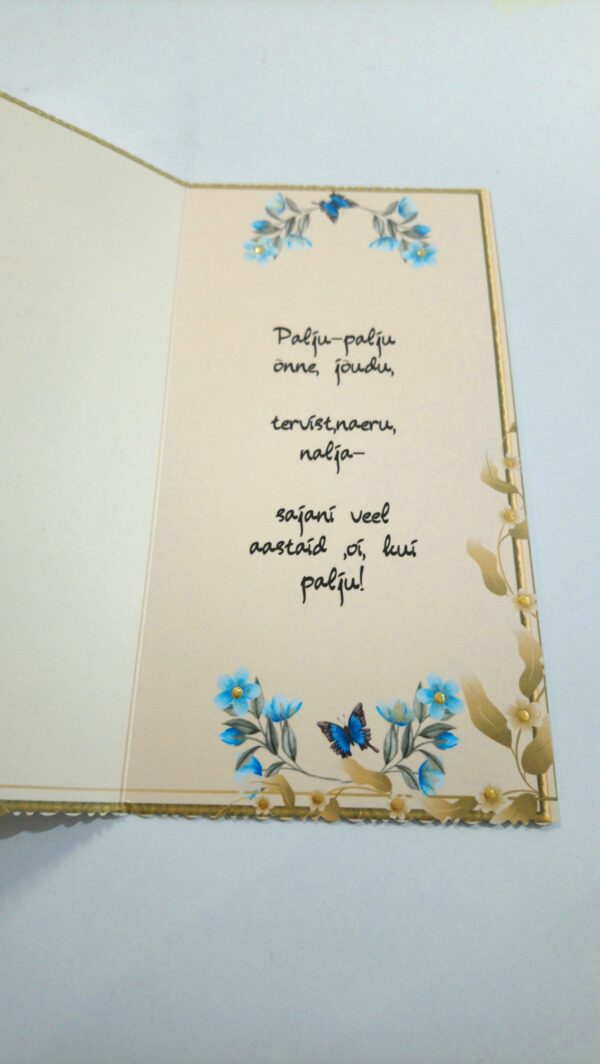 Palju-palju
õnne, jõudu,
tervist,naeru,
nalja-
sajani veel
aastaid ,oi, kui
palju!